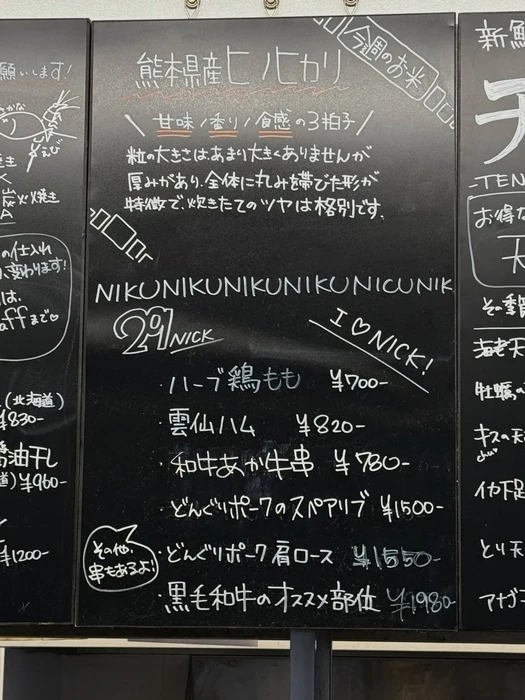 願いします!
かな
えび
焼き
炭火焼き
A
の仕入れ
変わります!
は、
affまで♡
(北海道)
¥830-
醤油干し
道)¥960-
¥1200-
今週のお米
熊本県産ヒノヒカリ
\ 甘味/香り/食感の3拍子 /
粒の大きさはあまり大きくありませんが
厚みがあり、全体に丸みを帯びた形が
特徴で、炊きたてのツヤは格別です。
NIKUNIKUNIKUNIKUNICUNIK
29 NICK
I ♡ NICK!
・ハーブ鶏もも ¥700-
・雲仙ハム ¥820-
・和牛あか牛串 ¥780-
・どんぐりポークのスペアリブ ¥1500-
・どんぐりポーク肩ロース ¥1550-
・黒毛和牛のオススメ部位 ¥1980-
その他、
串もあるよ!
新鮮
天
-TEN
お得な
天
その季節
海老天
牡蠣の
キスの天
イカ下足
とり天
アナゴ